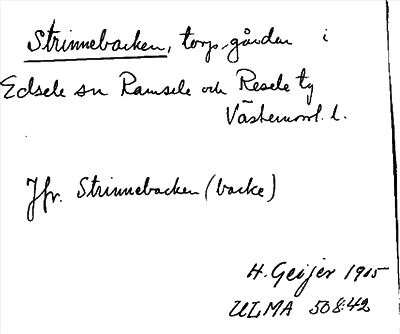 Strinnebacken, torp, gården i
Edsele sn Ramsele och Resele tg
Västernorrl. l.
Jfr. Strinnebacken (backe)
H. Geijer 1915
ULMA 508:42